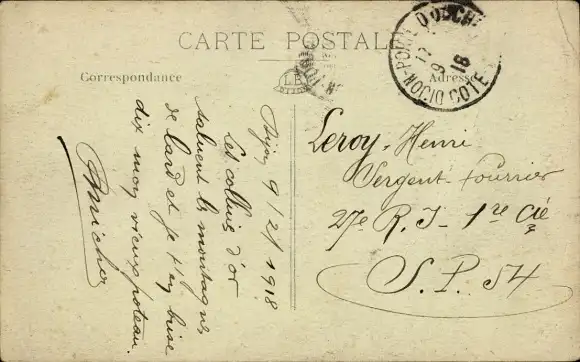 CARTE POSTALE
Correspondance
Adresse
DIJON-PORTE D'OUCHE
12
9 18
COTE
Dijon 9/2/1918
Les collines d'or
saluent les montagnes
de lard et je t'en brise
dix mon vieux poteau.
Leroy Henri
Sergent fourrier
27e R.I. 1re Cie
S.P. 54